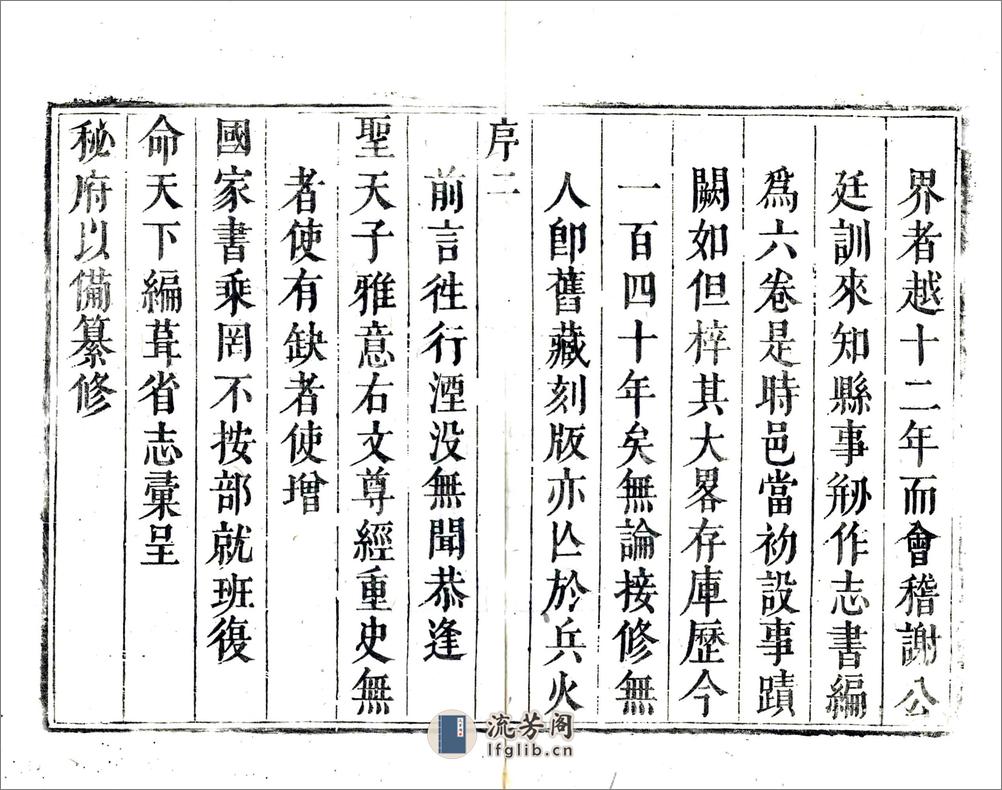 界者越十二年而會稽謝公
廷訓來知縣事剏作志書編
爲六卷是時邑當初設事蹟
闕如但梓其大畧存庫歷今
一百四十年矣無論接修無
人卽舊藏刻版亦亾於兵火
序二
前言徃行湮没無聞恭逢
聖天子雅意右文尊經重史無
者使有缺者使增
國家書乘罔不按部就班復
命天下編葺省志彙呈
秘府以備纂修
流芳阁
lfglib.cn